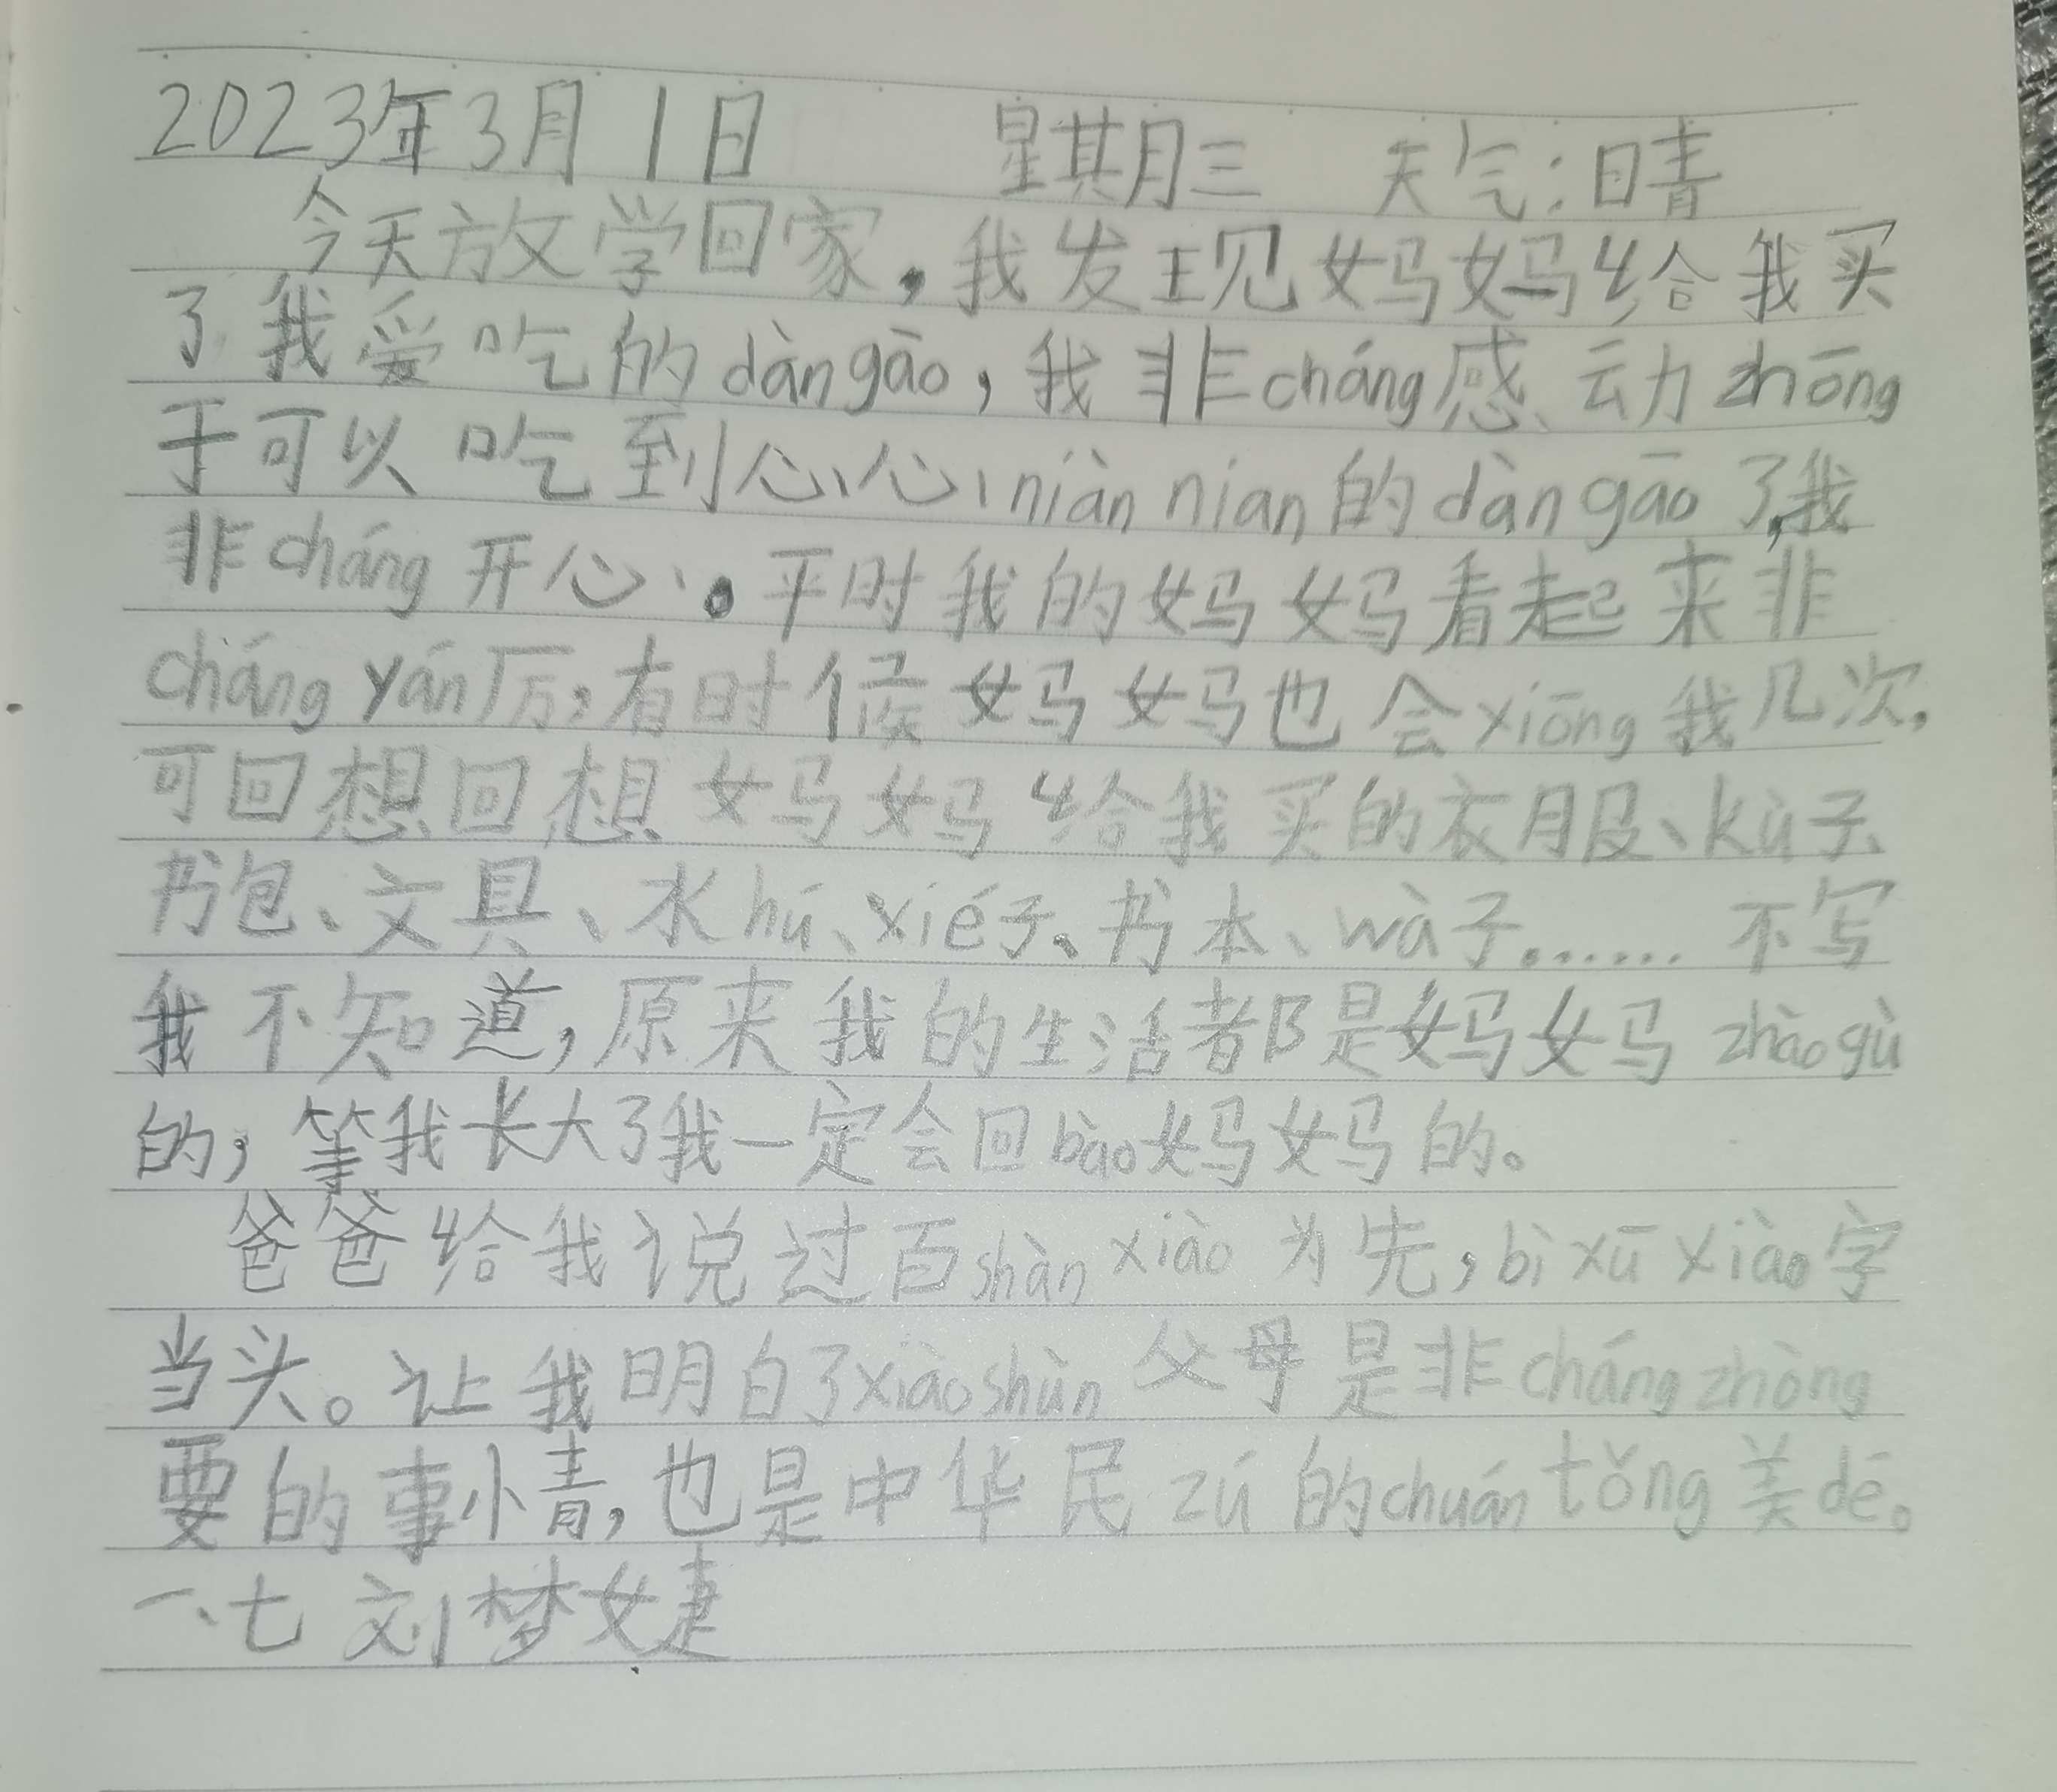 2023年3月1日 星期三 天气:晴
今天放学回家,我发现妈妈给我买
了我爱吃的dàngāo,我非cháng感动zhōng
于可以吃到心心niàn nian的dàngāo了,我
非cháng开心。平时我的妈妈看起来非
cháng yán厉,有时候妈妈也会xiōng我几次,
可回想回想妈妈给我买的衣服、kù子、
书包、文具、水hú、xié子、书本、wà子……不写
我不知道,原来我的生活都是妈妈zhào gù
的,等我长大了我一定会回bào妈妈的。
爸爸给我说过百shàn xiào为先,bì xū xiào字
当头。让我明白了xiào shùn父母是非cháng zhòng
要的事情,也是中华民zú的chuán tǒng美dé。
一、七 刘梦婕